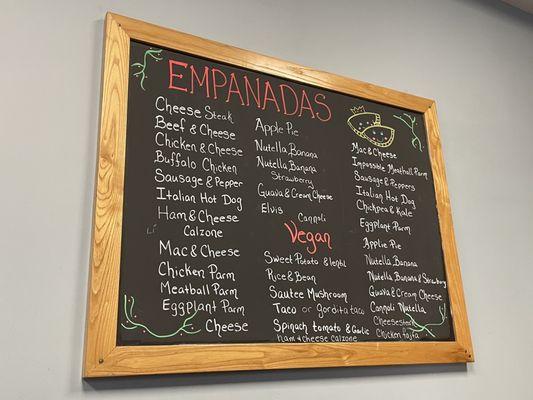 EMPANADAS
Cheese Steak
Beef & Cheese
Chicken & Cheese
Buffalo Chicken
Sausage & Pepper
Italian Hot Dog
Ham & Cheese
Calzone
Mac & Cheese
Chicken Parm
Meatball Parm
Eggplant Parm
Cheese
Apple Pie
Nutella, Banana
Nutella, Banana
Strawberry
Guava & Cream Cheese
Elvis
Cannoli
Vegan
Sweet Potato & lentil
Rice & Bean
Sautee Mushroom
Taco or gordita taco
Spinach tomato & Garlic
Ham & cheese calzone
Mac & Cheese
Impossible Meatball Parm
Sausage & Peppers
Italian Hot Dog
Chickpea & Kale
Eggplant Parm
Applie Pie
Nutella, Banana
Nutella, Banana & Strawbry
Guava & Cream Cheese
Cannoli Nutella
Cheesesteak
Chicken fajita